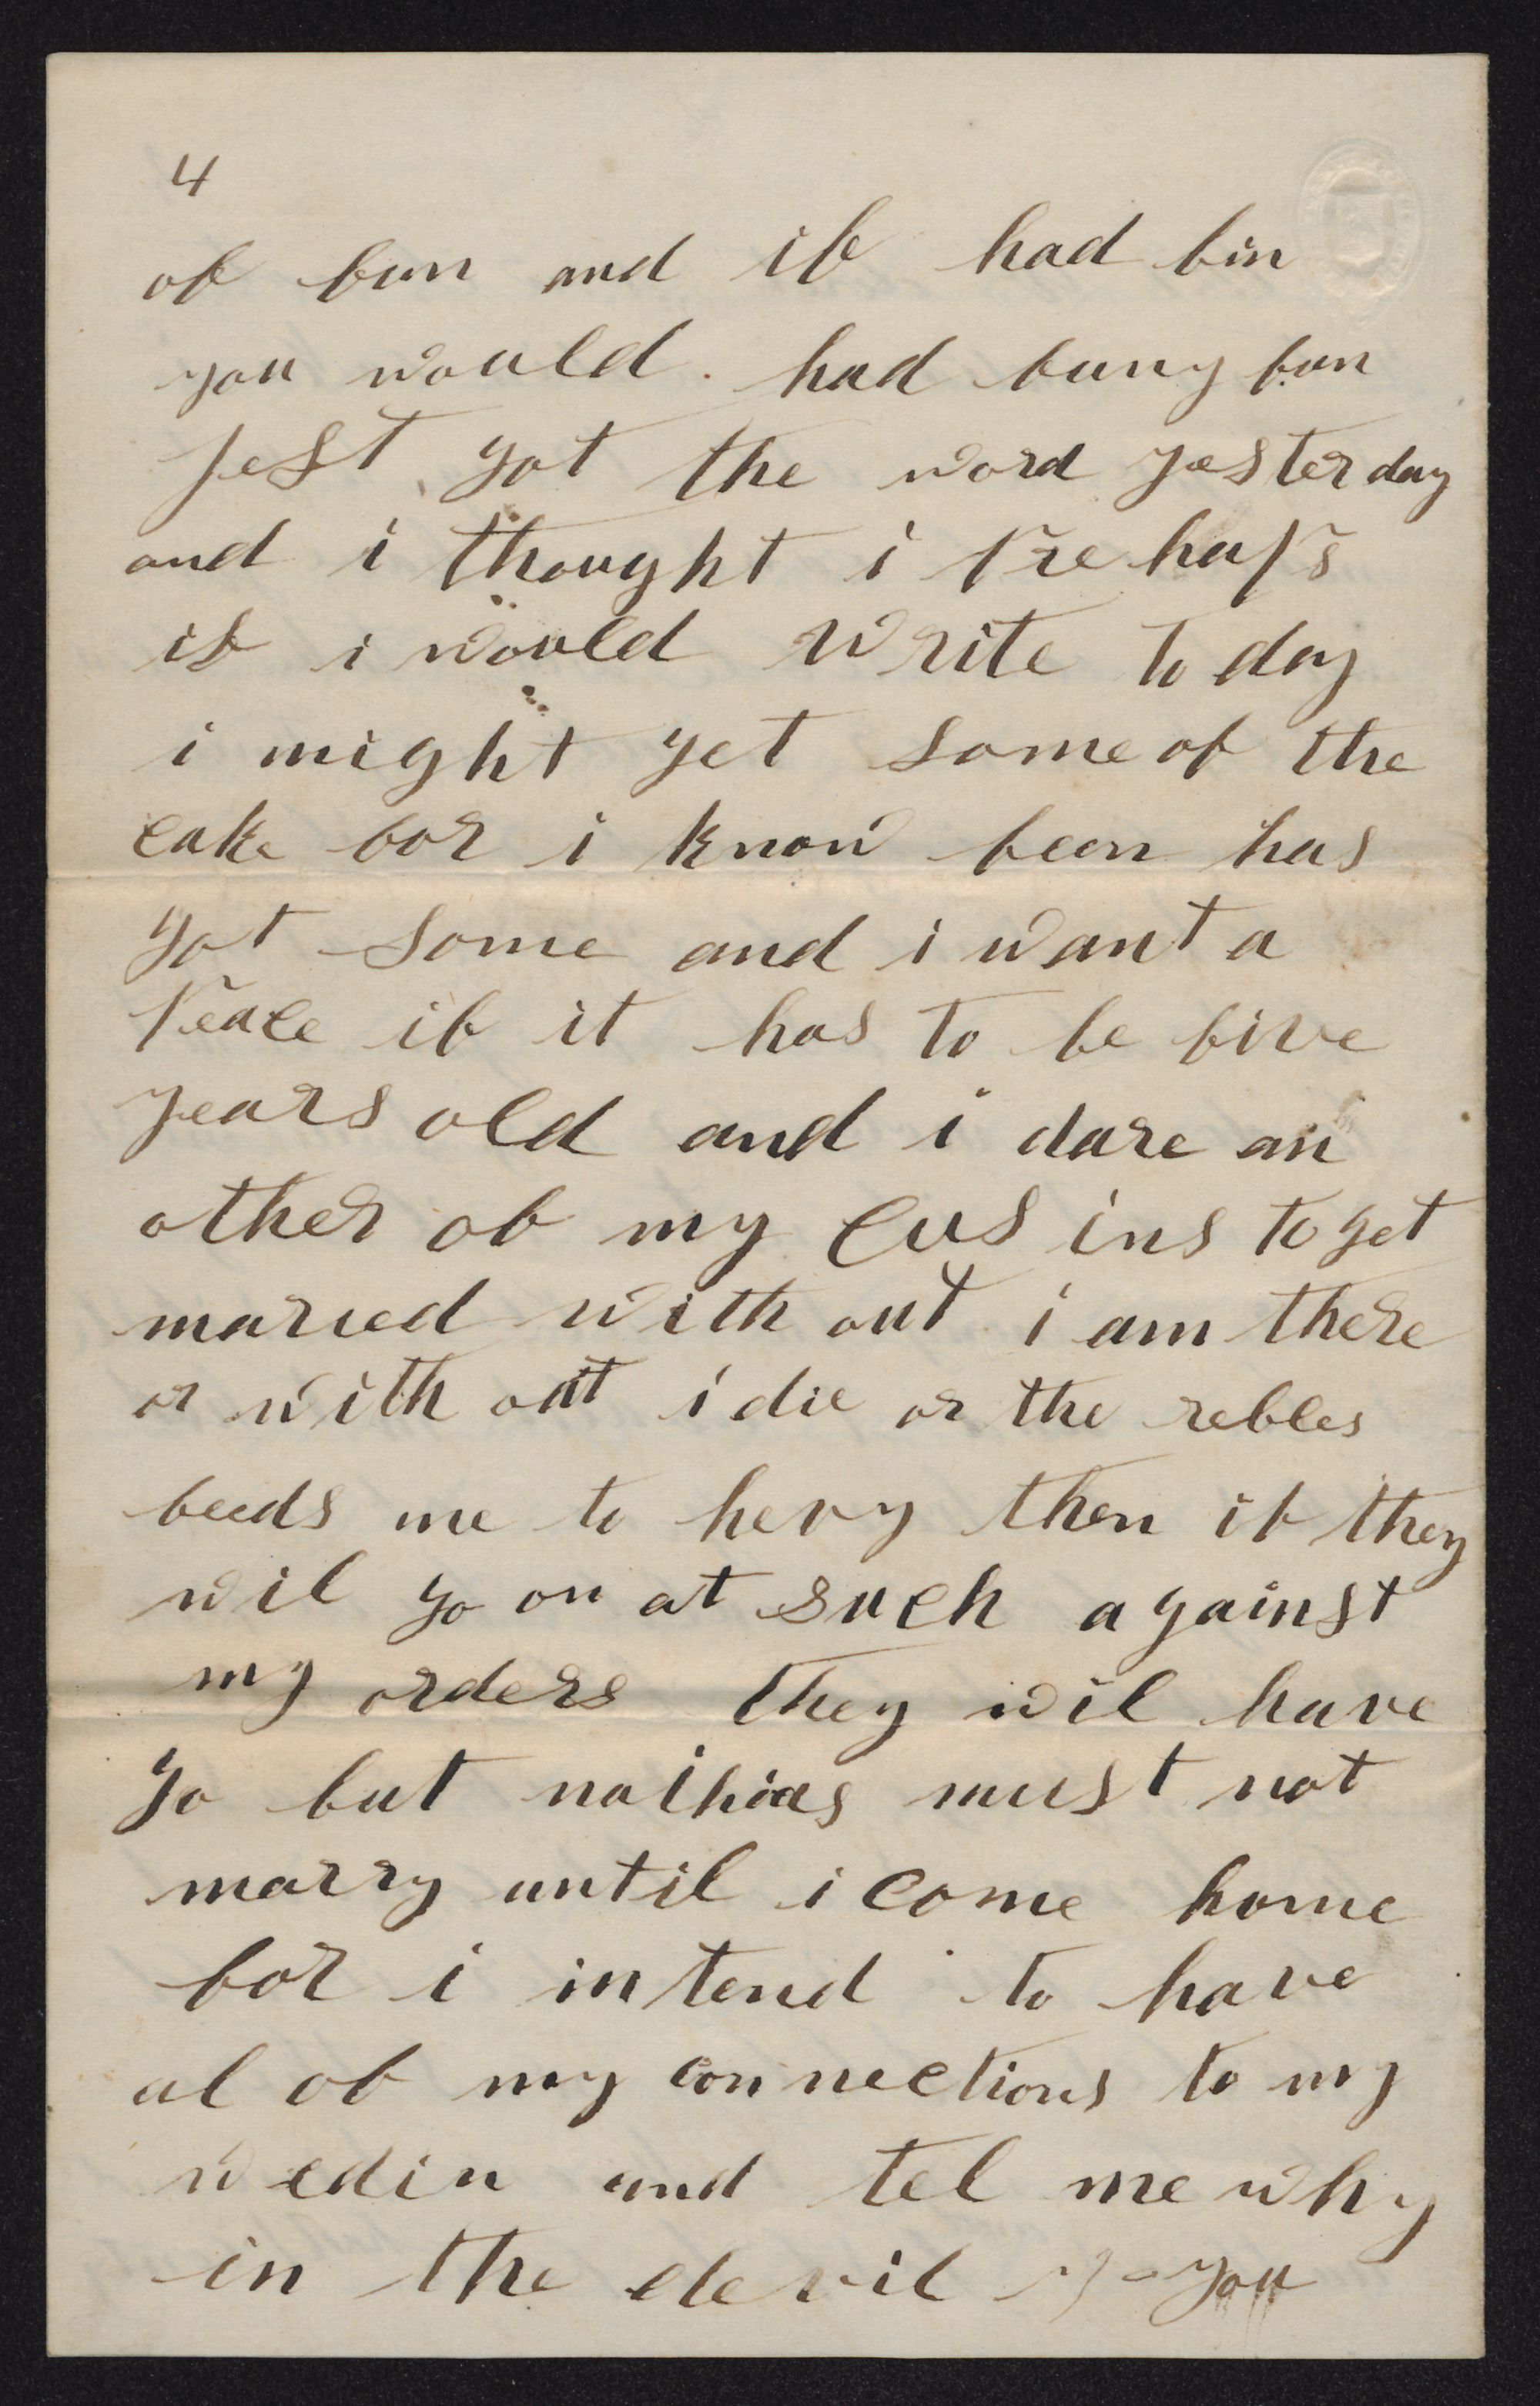 4
of fun and if had bin
you would had funy fun
jest got the word yesterday
and i thought i prehaps
if i would write to day
i might get some of the
cake for i know been has
got some and i want a
peace if it has to be five
years old and i dare an
other of my cus ins to get
maried with out i am there
or with out i die or the rebles
feeds me to hevy then if they
wil go on at such against
my orders they wil have
go but nothias must not
marry until i come home
for i in tend to have
al of my connections to my
wedin and tel me why
in the devil you